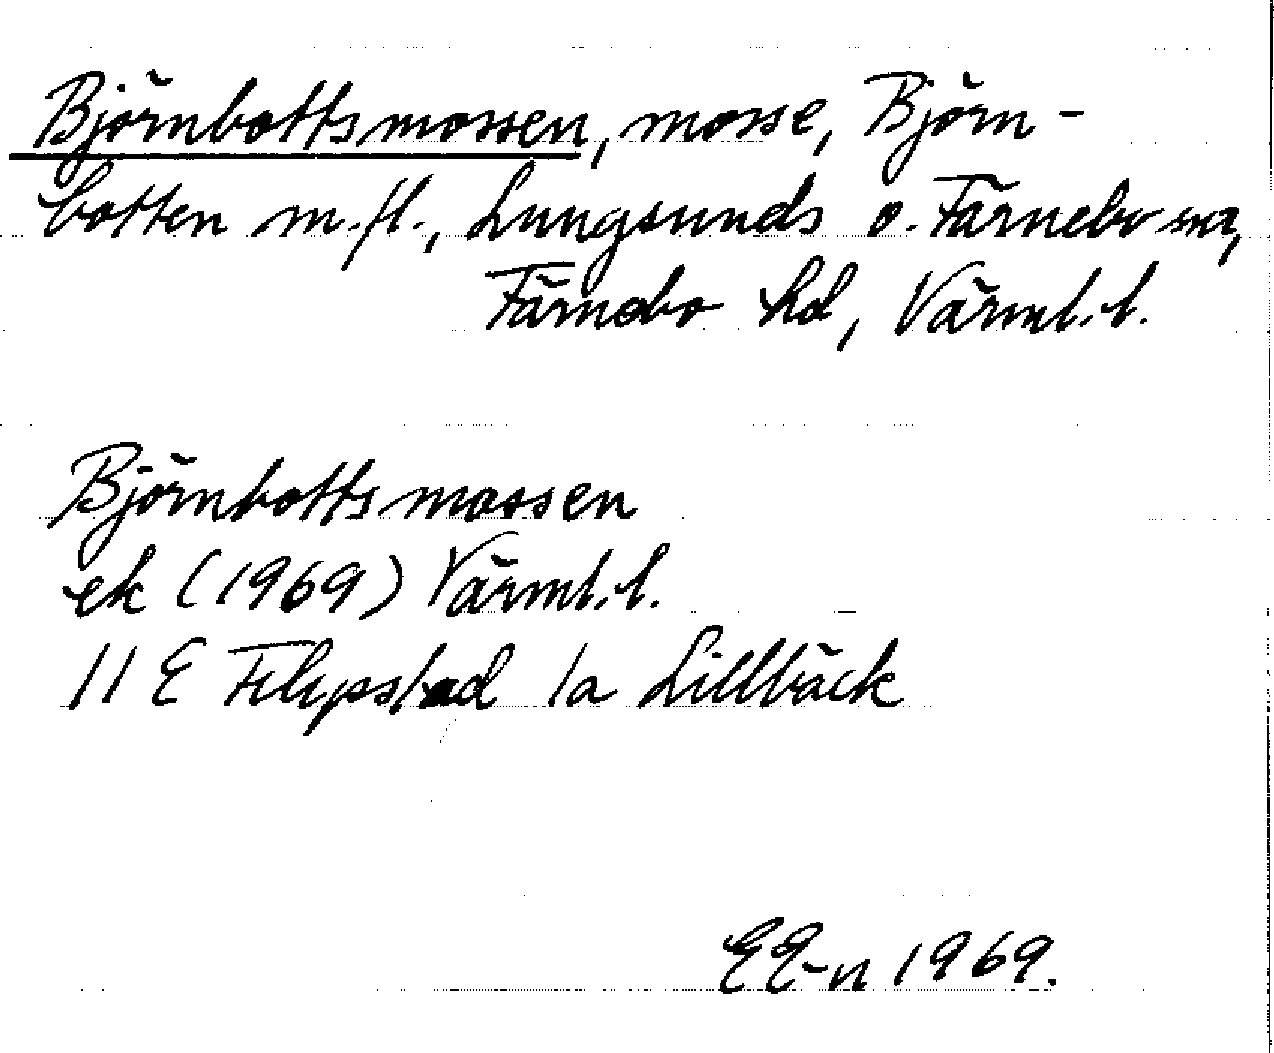 Björnbottsmossen, mosse, Björn-
botten m.fl., Lungsunds o. Färnebo snr,
Färnebo hd, Värml. l.
Björnbottsmossen
ek (1969) Värml. l.
11 E Filipstad 1a Lillbäck
EE-n 1969.